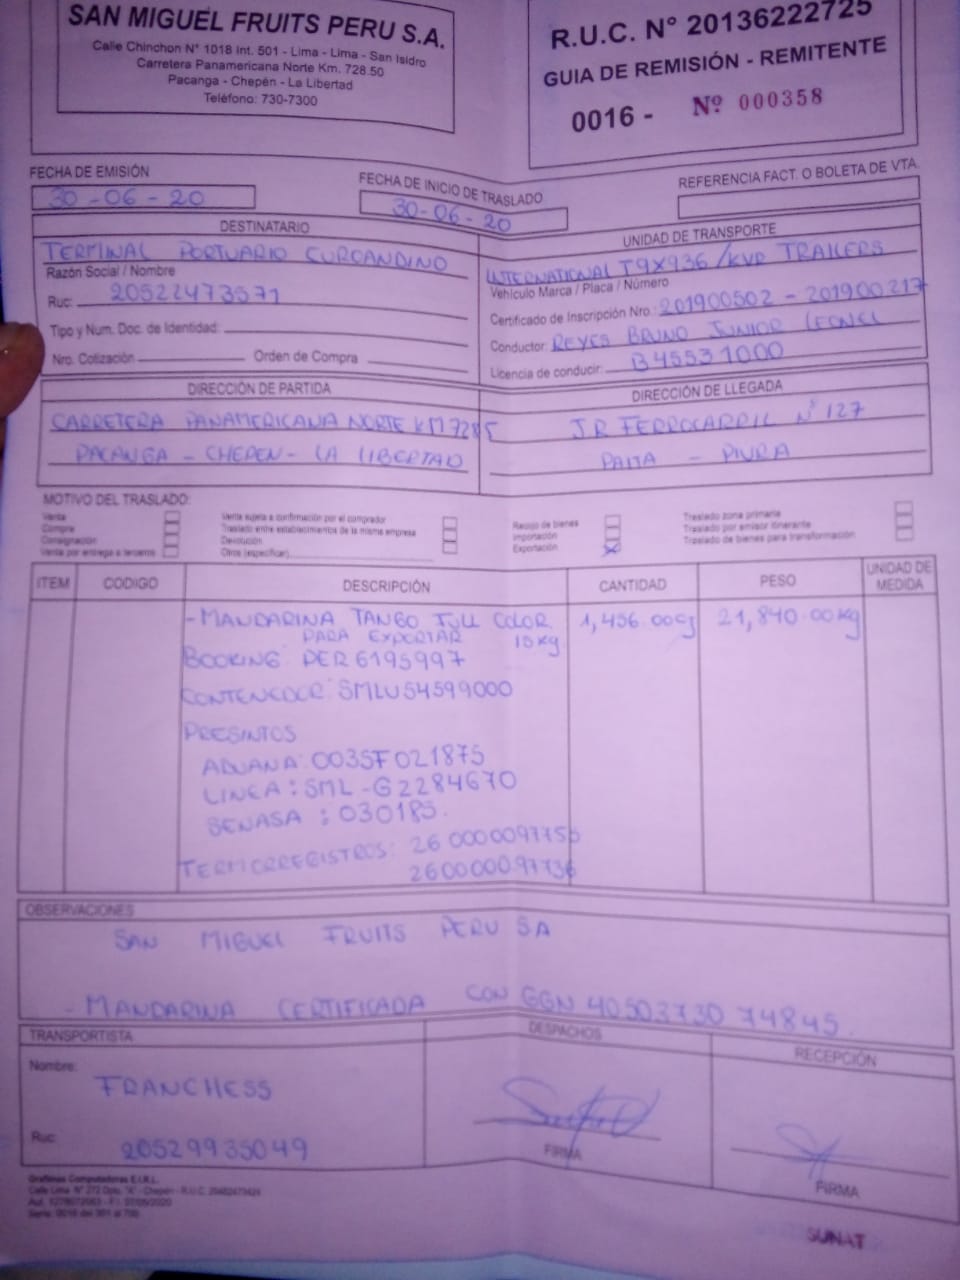 SAN MIGUEL FRUITS PERU S.A.
Calle Chinchon N° 1018 Int. 501 - Lima - Lima - San Isidro
Carretera Panamericana Norte Km. 728.50
Pacanga - Chepén - La Libertad
Teléfono: 730-7300
R.U.C. N° 20136222725
GUIA DE REMISIÓN - REMITENTE
0016 - Nº 000358
FECHA DE EMISIÓN
30 - 06 - 20
FECHA DE INICIO DE TRASLADO
30-06-20
REFERENCIA FACT. O BOLETA DE VTA.
DESTINATARIO
TERMINAL PORTUARIO EUROANDINO
Razón Social / Nombre
Ruc: 20522473571
Tipo y Num. Doc. de Identidad:
Nro. Cotización Orden de Compra
UNIDAD DE TRANSPORTE
INTERNATIONAL T9X936 / KVP TRAILERS
Vehículo Marca / Placa / Número
Certificado de Inscripción Nro.: 201900502 - 201900217
Conductor: REYES BRUNO JUNIOR LEONEL
Licencia de conducir: B45531000
DIRECCIÓN DE PARTIDA
CARRETERA PANAMERICANA NORTE KM 728.5
PACANGA - CHEPEN - LA LIBERTAD
DIRECCIÓN DE LLEGADA
JR FERROCARRIL N° 127
PAITA - PIURA
MOTIVO DEL TRASLADO:
Venta
Compra
Consignación
Venta por entrega a terceros
Venta sujeta a confirmación por el comprador
Traslado entre establecimientos de la misma empresa
Devolución
Otros (especificar)
Recojo de bienes
Importación
Exportación
Traslado zona primaria
Traslado por emisor itinerante
Traslado de bienes para transformación
ITEM CODIGO DESCRIPCIÓN CANTIDAD PESO UNIDAD DE MEDIDA
- MANDARINA TANGO FULL COLOR 1,456.00cj 21,840.00kg
PARA EXPORTAR 15kg
BOOKING PER6195997
CONTENEDOR: SMLU54599000
PRESINTOS
ADUANA: 003SF021875
LINEA: SML-G2284670
SENASA: 030185.
TERMORREGISTROS: 260000097756
260000097736
OBSERVACIONES
SAN MIGUEL FRUITS PERU SA
- MANDARINA CERTIFICADA CON GGN 4050373074845.
TRANSPORTISTA
Nombre:
FRANCHESS
Ruc: 20529935049
DESPACHOS
FIRMA
RECEPCIÓN
FIRMA
Graficas Computadoras E.I.R.L.
SUNAT